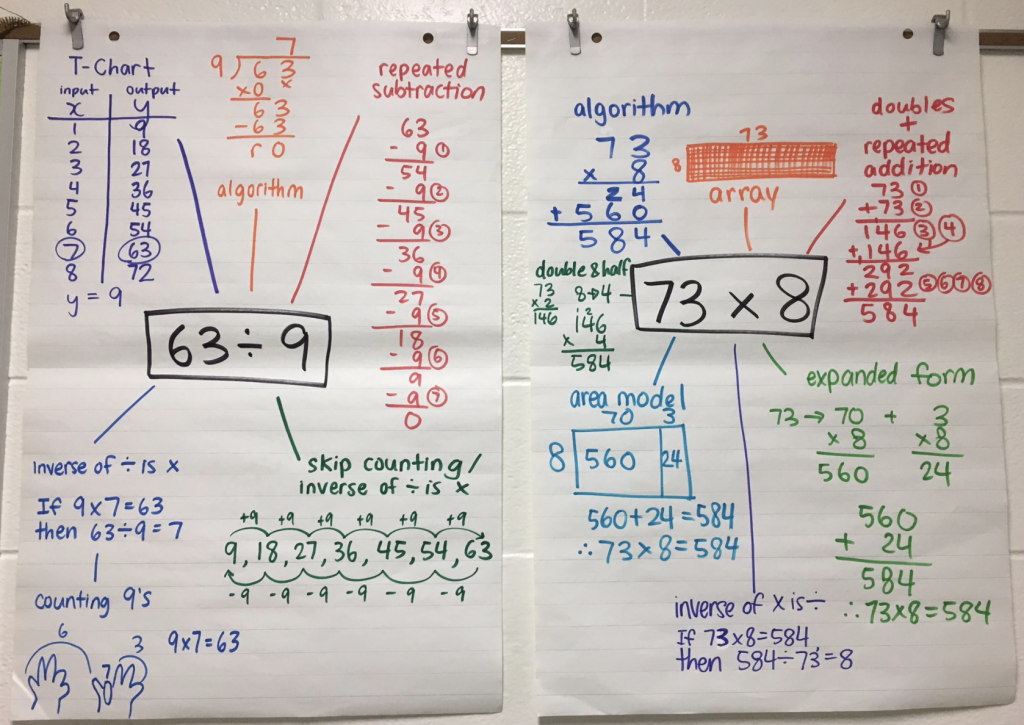 T-Chart
input output
x y
1 9
2 18
3 27
4 36
5 45
6 54
7 63
8 72
y = 9
7
9)63
x0 x
63
-63
r 0
algorithm
repeated
subtraction
63
- 9 ①
54
- 9 ②
45
- 9 ③
36
- 9 ④
27
- 9 ⑤
18
- 9 ⑥
9
- 9 ⑦
0
63 ÷ 9
inverse of ÷ is x
If 9x7=63
then 63÷9=7
counting 9's
6
3
7
0
9x7=63
skip counting/
inverse of ÷ is x
+9 +9 +9 +9 +9 +9
9, 18, 27, 36, 45, 54, 63
-9 -9 -9 -9 -9 -9
algorithm
73
x 8
24
+ 560
584
73
8
array
doubles
+
repeated
addition
73 ①
+73 ②
146 ③ ④
+146
292
+292 ⑤⑥⑦⑧
584
double & half
73 8→4
x 2
146
12
146
x 4
584
73 x 8
area model
70 3
8 560 24
560+24=584
∴ 73x8=584
expanded form
73 → 70 + 3
x 8 x8
560 24
560
+ 24
584
∴ 73x8=584
inverse of x is ÷
If 73x8=584
then 584÷73=8